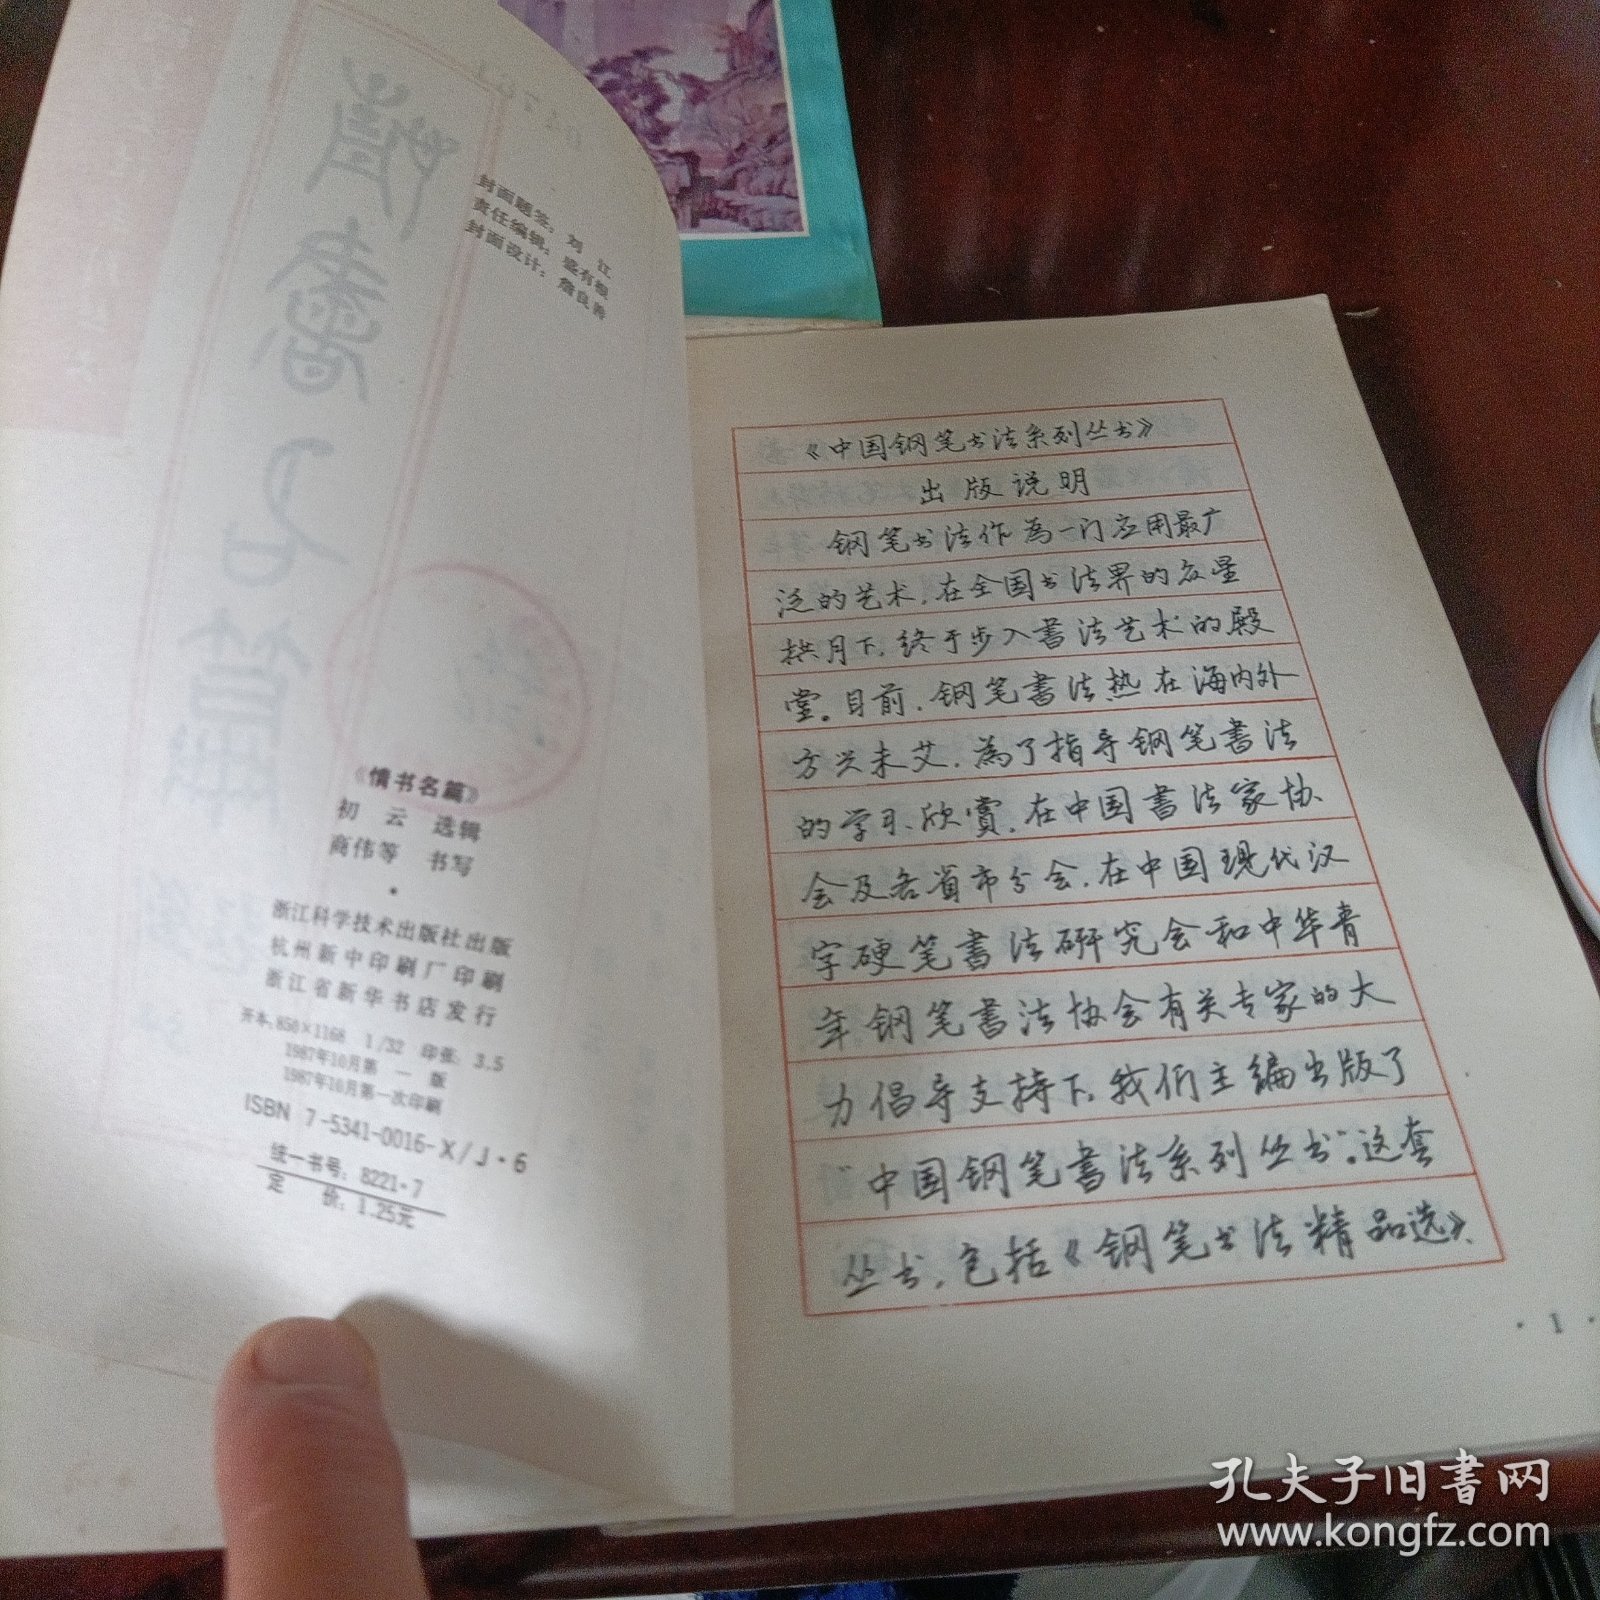 封面题签：刘 江
责任编辑：盛有根
封面设计：詹良善
《情书名篇》
初 云 选辑
商伟等 书写
浙江科学技术出版社出版
杭州新中印刷厂印刷
浙江省新华书店发行
开本：850×1168 1/32 印张：3.5
1987年10月第一版
1987年10月第一次印刷
ISBN 7-5341-0016-X/J·6
统一书号：8221·7
定 价：1.25元
《中国钢笔书法系列丛书》
出版说明
钢笔书法作為一门应用最广
泛的艺术，在全国书法界的众星
拱月下，终于步入書法艺术的殿
堂。目前，钢笔書法热在海内外
方兴未艾，為了指导钢笔書法
的学习、欣赏，在中国書法家协
会及各省市分会，在中国现代汉
字硬笔書法研究会和中华青
年钢笔書法协会有关专家的大
力倡导支持下，我们主编出版了
“中国钢笔書法系列丛书”。这套
丛书，包括《钢笔书法精品选》、
·1·
孔夫子旧書网
www.kongfz.com